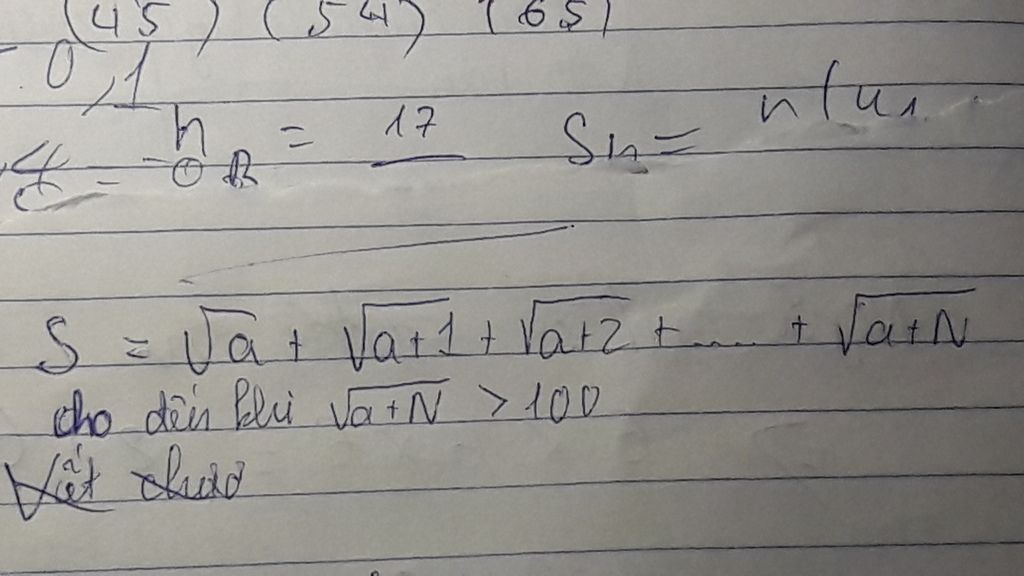 (45) (54) (65)
0,1
n = 17 Sn = n(u1
S = √a + √a+1 + √a+2 + .... + √a+N
cho đến khi √a+N > 100
Viết chươ